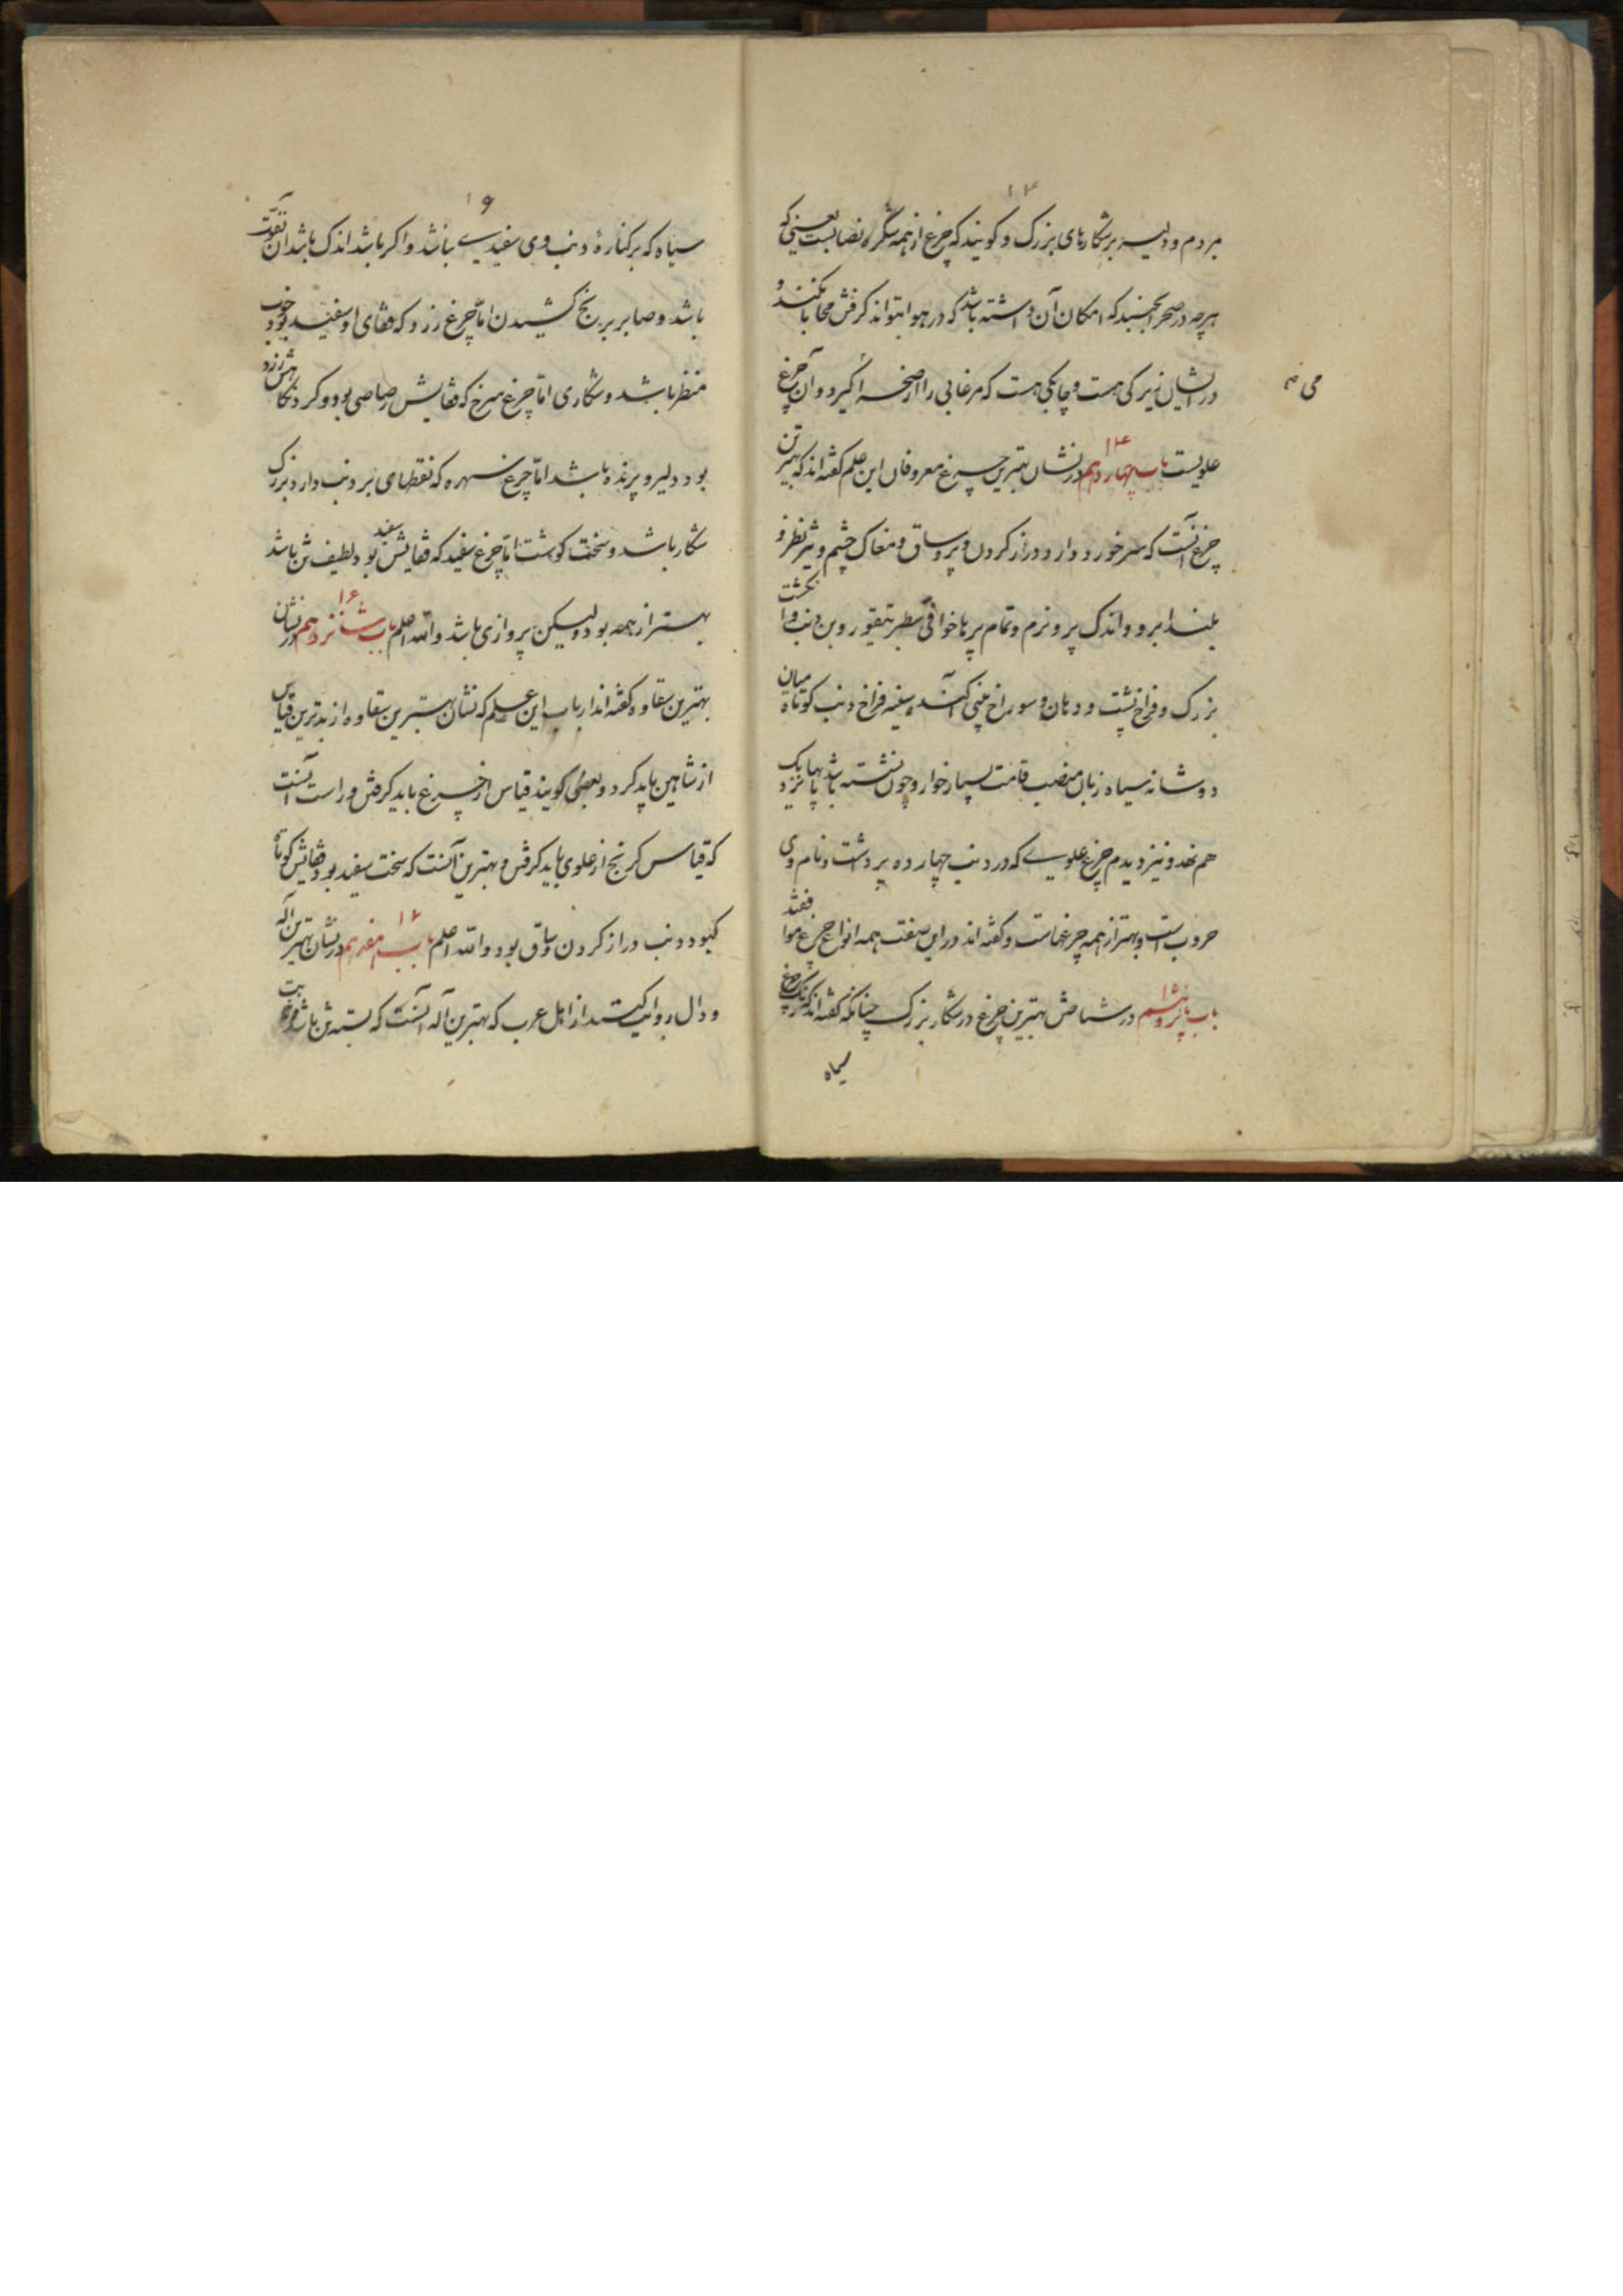 ۱۴
مردم و دلیر بر شکارهای بزرک و کویند که چرغ از همه شکره یعنی که
هرچه در صحرا بجنبد که امکان آن داشته باشد که در هوا بتواند کرفتن محابا نکند و
در ایشان زیرکی هست و چابکی هست که مرغابی را از کیرد و آن چرغ
می
علویست باب چهاردهم ۱۴ در نشان بهترین چرغ معروفان این علم کفته‌اند که بهترین
چرغ آنست که سر خورد دارد و دراز کردن و پر و ساق و مغاک چشم و تیز نظر و
بلند ابرو و اندک پر و نرم و تمام پر با خوافی و بن دنب و انکشت
بزرک و فراخ پشت و دهان و سوراخ بینی آکنده سینه فراخ دنب کوتاه میان
دوشانه سیاه زبان قامت بسیار خوار و چون نشسته باشد پایها بنزدیک
هم نهد و نیز دیدم چرغ علوی که در دنب چهارده پر داشت و نام وی
حروب است و بهتر از همه چرغهاست و کفته‌اند در این صفت همه انواع چرغ موافقند
باب پانزدهم ۱۵ در شناختن بهترین چرغ در شکار بزرک چنانکه کفته‌اند که چرغ
سیاه
۱۶
سیاه که بر کناره دنب وی سفیدی نباشد و اکر باشد اندک باشد آن بقوت
باشد و صابر بر رنج کشیدن امّا چرغ زرد که قفای او سفید بود خوب
منظر باشد و شکاری امّا چرغ سرخ که قفایش رصاصی بود و کرد نکاهش زرد
بود دلیر و پرنده باشد امّا چرغ که نقطهای بر دنب دارد بزرک
شکار باشد و سخت کوشت امّا چرغ سفید که قفایش سفید بود لطیف تن باشد
بهتر از همه بود ولیکن پروازی باشد والله اعلم باب شانزدهم ۱۶ در نشان
بهترین سقاوه کفته‌اند ارباب این علم که نشان بهترین سقاوه از بدترین قیاس
از شاهین باید کرد و بعضی کویند قیاس از چرغ باید کرفتن و راست آنست
که قیاس کرنج از علوی باید کرفتن و بهترین آنست که سخت سفید بود و قفایش کوتاه
کبود دنب دراز کردن و ساق بود والله اعلم باب هفدهم ۱۷ در نشان بهترین آله
و دال روایتست از اهل عرب که بهترین آله آنست که بسته تن باشد